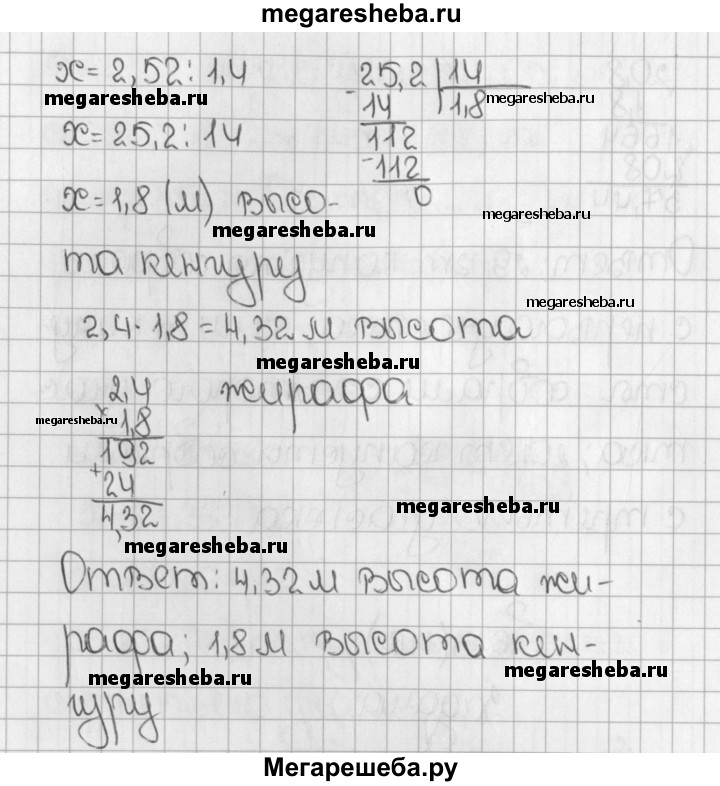 megaresheba.ru
x = 2,52 : 1,4
25,2 | 14
megaresheba.ru
- 14 | 1,8 megaresheba.ru
x = 25,2 : 14
112
- 112
0
x = 1,8 (м) высо-
megaresheba.ru
megaresheba.ru
та кенгуру
megaresheba.ru
2,4 · 1,8 = 4,32 м высота
megaresheba.ru
2,4 жирафа
megaresheba.ru × 1,8
192
+ 24
4,32
megaresheba.ru
megaresheba.ru
Ответ: 4,32 м высота жи-
рафа; 1,8 м высота кен-
megaresheba.ru
megaresheba.ru
гуру
Мегарешеба.ру